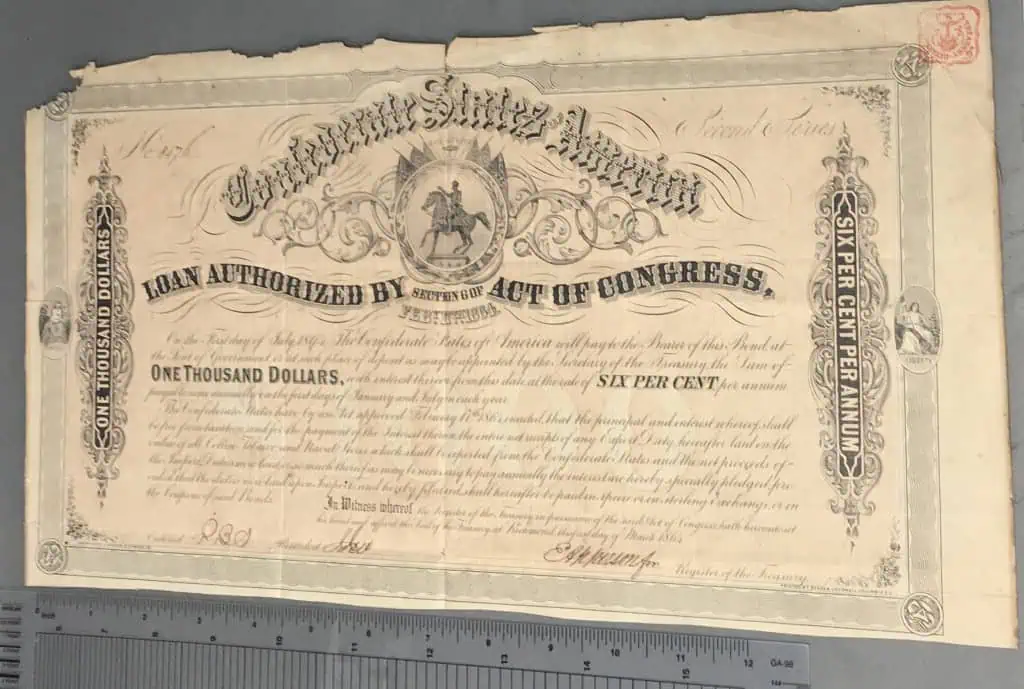 Second Series
Confederate States America
LOAN AUTHORIZED BY SECTION 6 OF ACT OF CONGRESS,
FEBY. 17TH 1864.
ONE THOUSAND DOLLARS
SIX PER CENT PER ANNUM
On the First day of July The Confederate States of America will pay to the Bearer of this Bond, at
the Seat of Government or at such place of deposit as may be appointed by the Secretary of the Treasury, the Sum of
ONE THOUSAND DOLLARS, with interest thereon from this date at the rate of SIX PER CENT per annum
payable semi annually on the first days of January and July in each year.
The Confederate States have by an Act approved February 17th 1864 enacted, that the principal and interest whereof shall
be free from taxation, and for the payment of the Interest thereon the entire net receipts of any Export Duty hereafter laid on the
value of all Cotton Tobacco and Naval Stores which shall be exported from the Confederate States and the net proceeds of
the Import Duties now laid or so much thereof as may be necessary to pay annually the interest are hereby specially pledged, pro-
vided that the duties now laid upon Imports and hereby pledged, shall hereafter be paid in specie or in sterling Exchange, or in
the Coupons of said Bonds.
In Witness whereof the Register of the Treasury in pursuance of the said Act of Congress hath hereunto set
his hand and affixed the Seal of the Treasury at Richmond, this first day of March 1864.
Entered Recorded
Register of the Treasury
Inch 1 2 3 4 5 6 7 8 9 10 11 12 GA-96